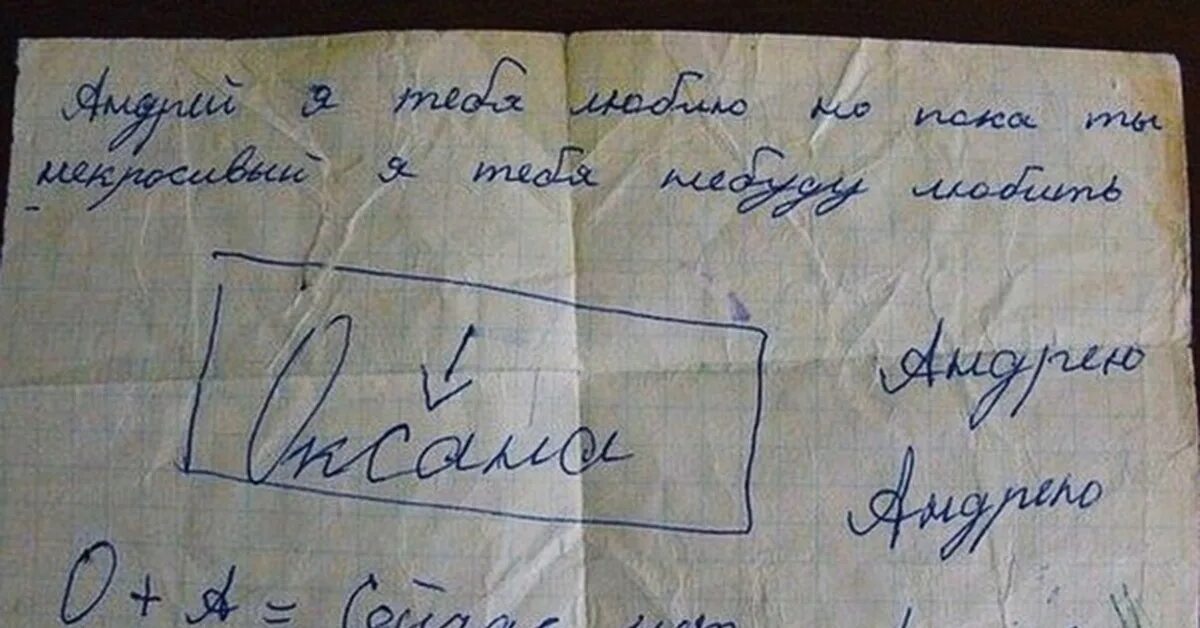 Андрей я тебя люблю но пока ты
некросивый я тебя небуду любить
Оксана
Андрею
Андрею
О + А = Сейчас нет